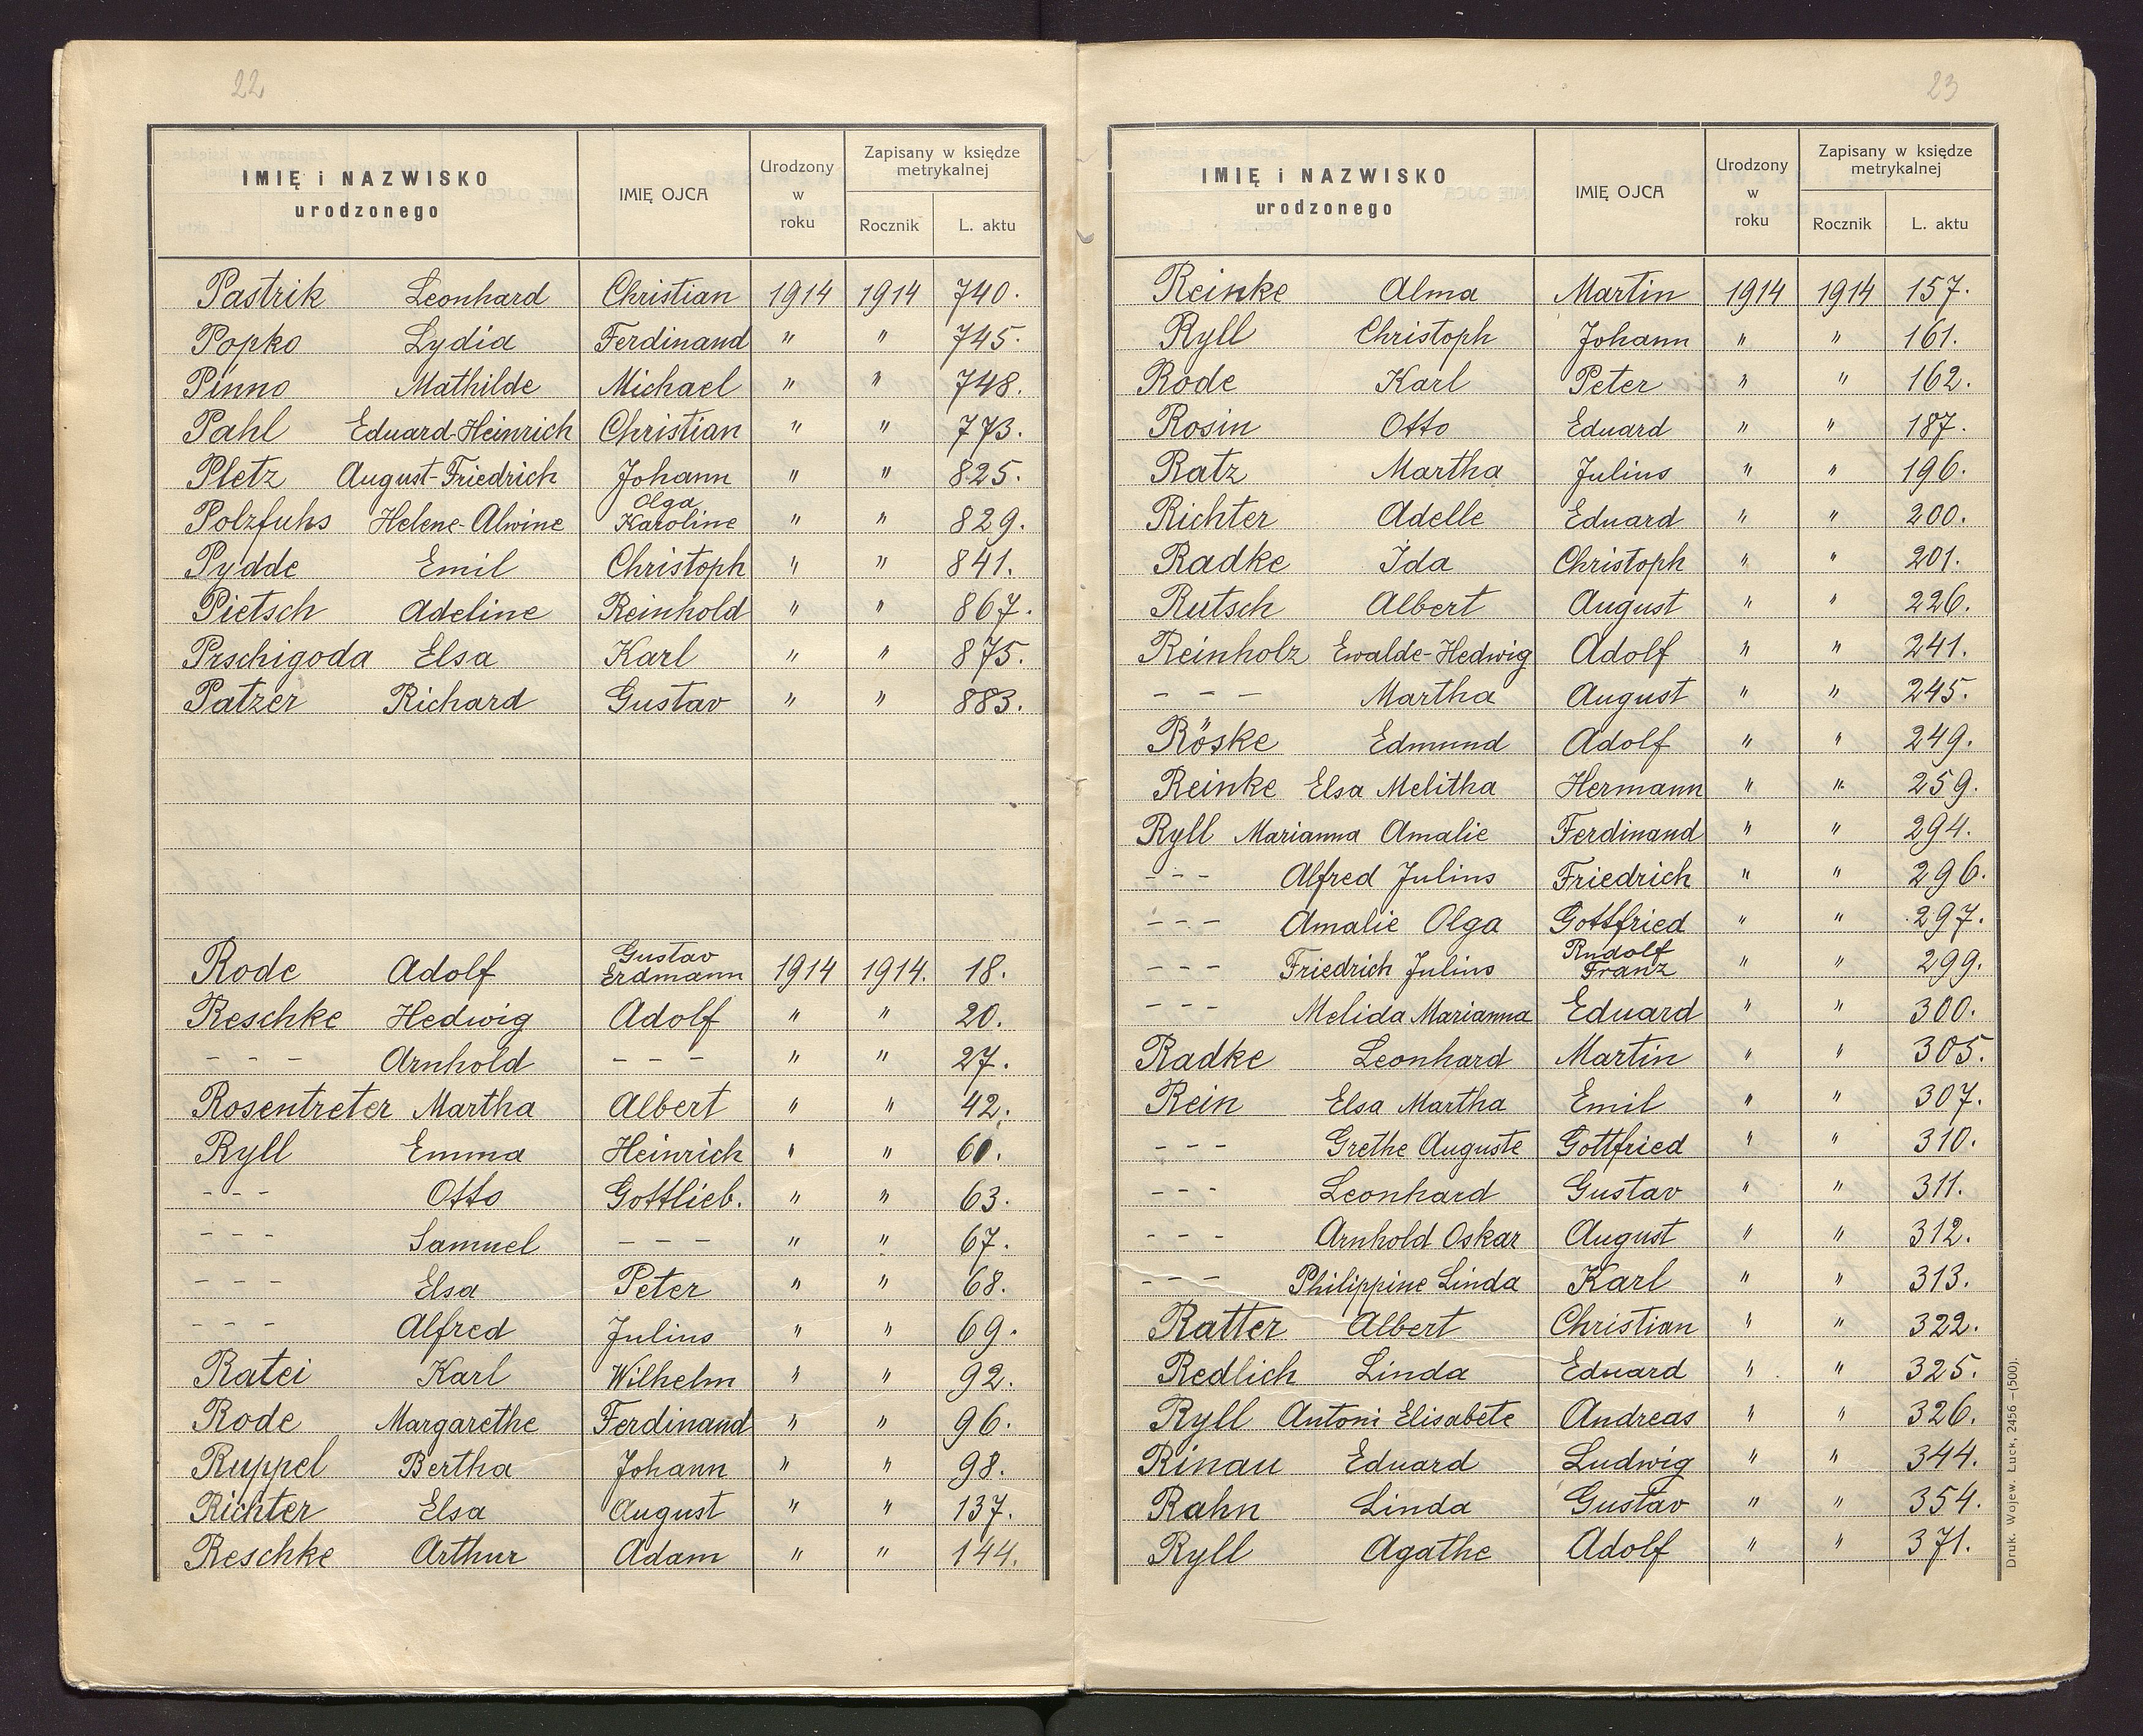 22
IMIĘ i NAZWISKO urodzonego | IMIĘ OJCA | Urodzony w roku | Zapisany w księdze metrykalnej
Rocznik | L. aktu
Pastrik Leonhard Christian 1914 1914 740.
Popko Lydia Ferdinand " " 745.
Pinno Mathilde Michael " " 748.
Pahl Eduard-Heinrich Christian " " 773.
Pletz August-Friedrich Johann " " 825.
Polzfuhs Helene-Alwine Olga Karoline " " 829.
Pydde Emil Christoph " " 841.
Pietsch Adeline Reinhold " " 867.
Prschigoda Elsa Karl " " 875.
Patzer Richard Gustav " " 883.
Rode Adolf Gustav Erdmann 1914 1914. 18.
Reschke Hedwig Adolf " " 20.
- - - Arnhold - - - " " 27.
Rosentreter Martha Albert " " 42.
Ryll Emma Heinrich " " 60.
- - - Otto Gottlieb. " " 63.
- - - Samuel - - - " " 67.
- - - Elsa Peter " " 68.
- - - Alfred Julius " " 69.
Ratei Karl Wilhelm " " 92.
Rode Margarethe Ferdinand " " 96.
Ruppel Bertha Johann " " 98.
Richter Elsa August " " 137.
Reschke Arthur Adam " " 144.
23
IMIĘ i NAZWISKO urodzonego | IMIĘ OJCA | Urodzony w roku | Zapisany w księdze metrykalnej
Rocznik | L. aktu
Reinke Alma Martin 1914 1914 157.
Ryll Christoph Johann " " 161.
Rode Karl Peter " " 162.
Rosin Otto Eduard " " 187.
Ratz Martha Julius " " 196.
Richter Adelle Eduard " " 200.
Radke Ida Christoph " " 201.
Rutsch Albert August " " 226.
Reinholz Ewalde-Hedwig Adolf " " 241.
- - - Martha August " " 245.
Röske Edmund Adolf " " 249.
Reinke Elsa Melitha Hermann " " 259.
Ryll Marianna Amalie Ferdinand " " 294.
- - - Alfred Julius Friedrich " " 296.
- - - Amalie Olga Gottfried " " 297.
- - - Friedrich Julius Rudolf Franz " " 299.
- - - Melida Marianna Eduard " " 300.
Radke Leonhard Martin " " 305.
Rein Elsa Martha Emil " " 307.
- - - Grethe Auguste Gottfried " " 310.
- - - Leonhard Gustav " " 311.
- - - Arnhold Oskar August " " 312.
- - - Philippine Linda Karl " " 313.
Ratter Albert Christian " " 322.
Redlich Linda Eduard " " 325.
Ryll Antoni Elisabete Andreas " " 326.
Rinau Eduard Ludwig " " 344.
Rahn Linda Gustav " " 354.
Ryll Agathe Adolf " " 371.
Druk. Wojew. Łuck, 2456 -(500).